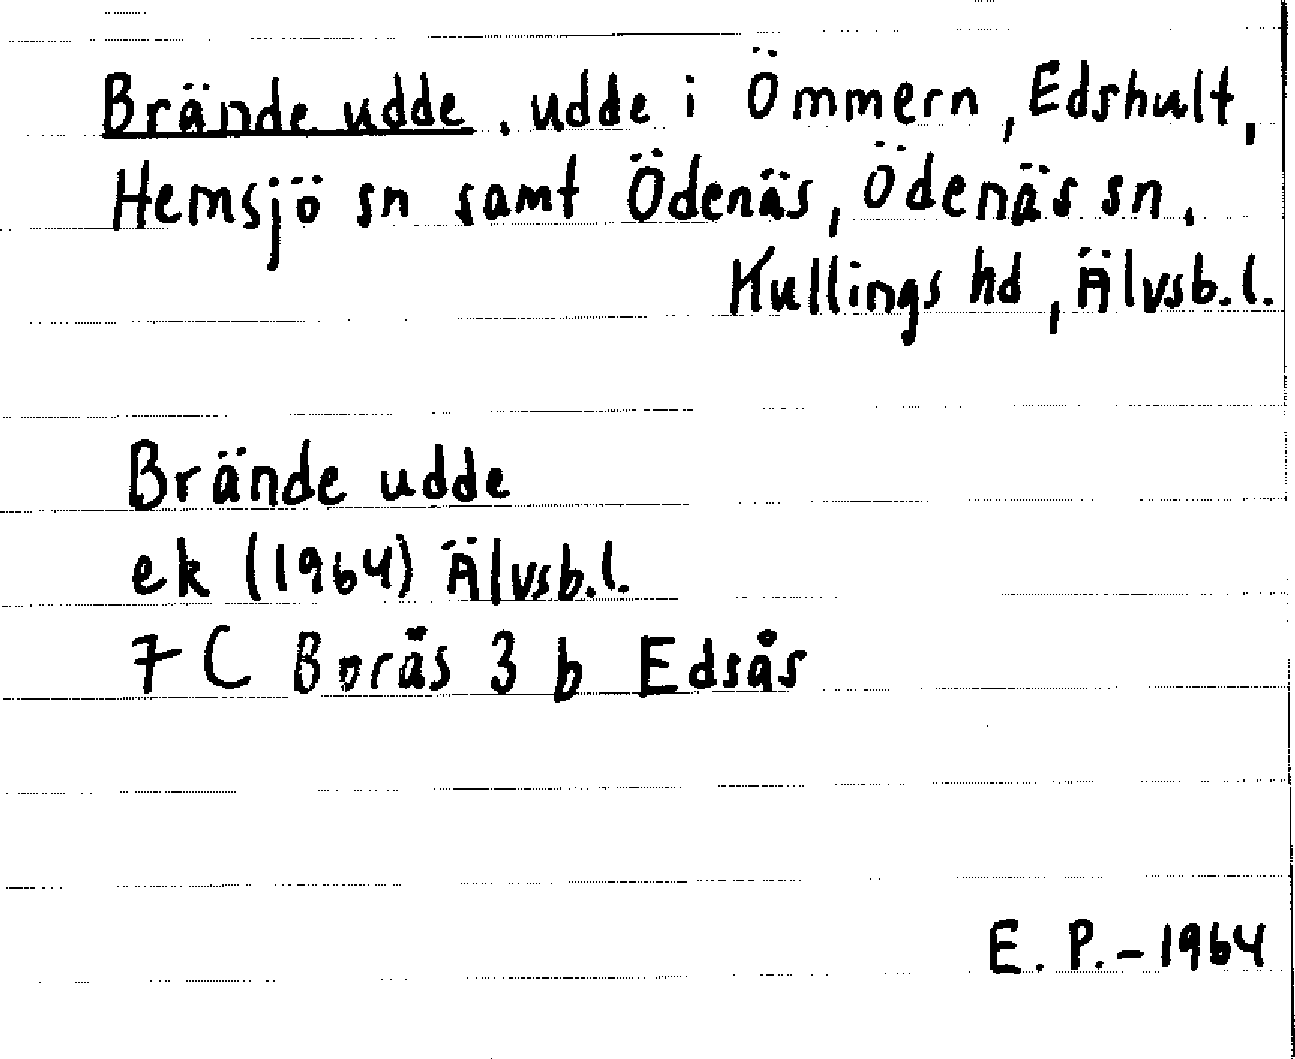 Brände udde, udde i Ömmern, Edshult,
Hemsjö sn samt Ödenäs, Ödenäs sn,
Kullings hd, Älvsb.l.
Brände udde
ek (1964) Älvsb.l.
7 C Borås 3 b Edsås
E. P. - 1964